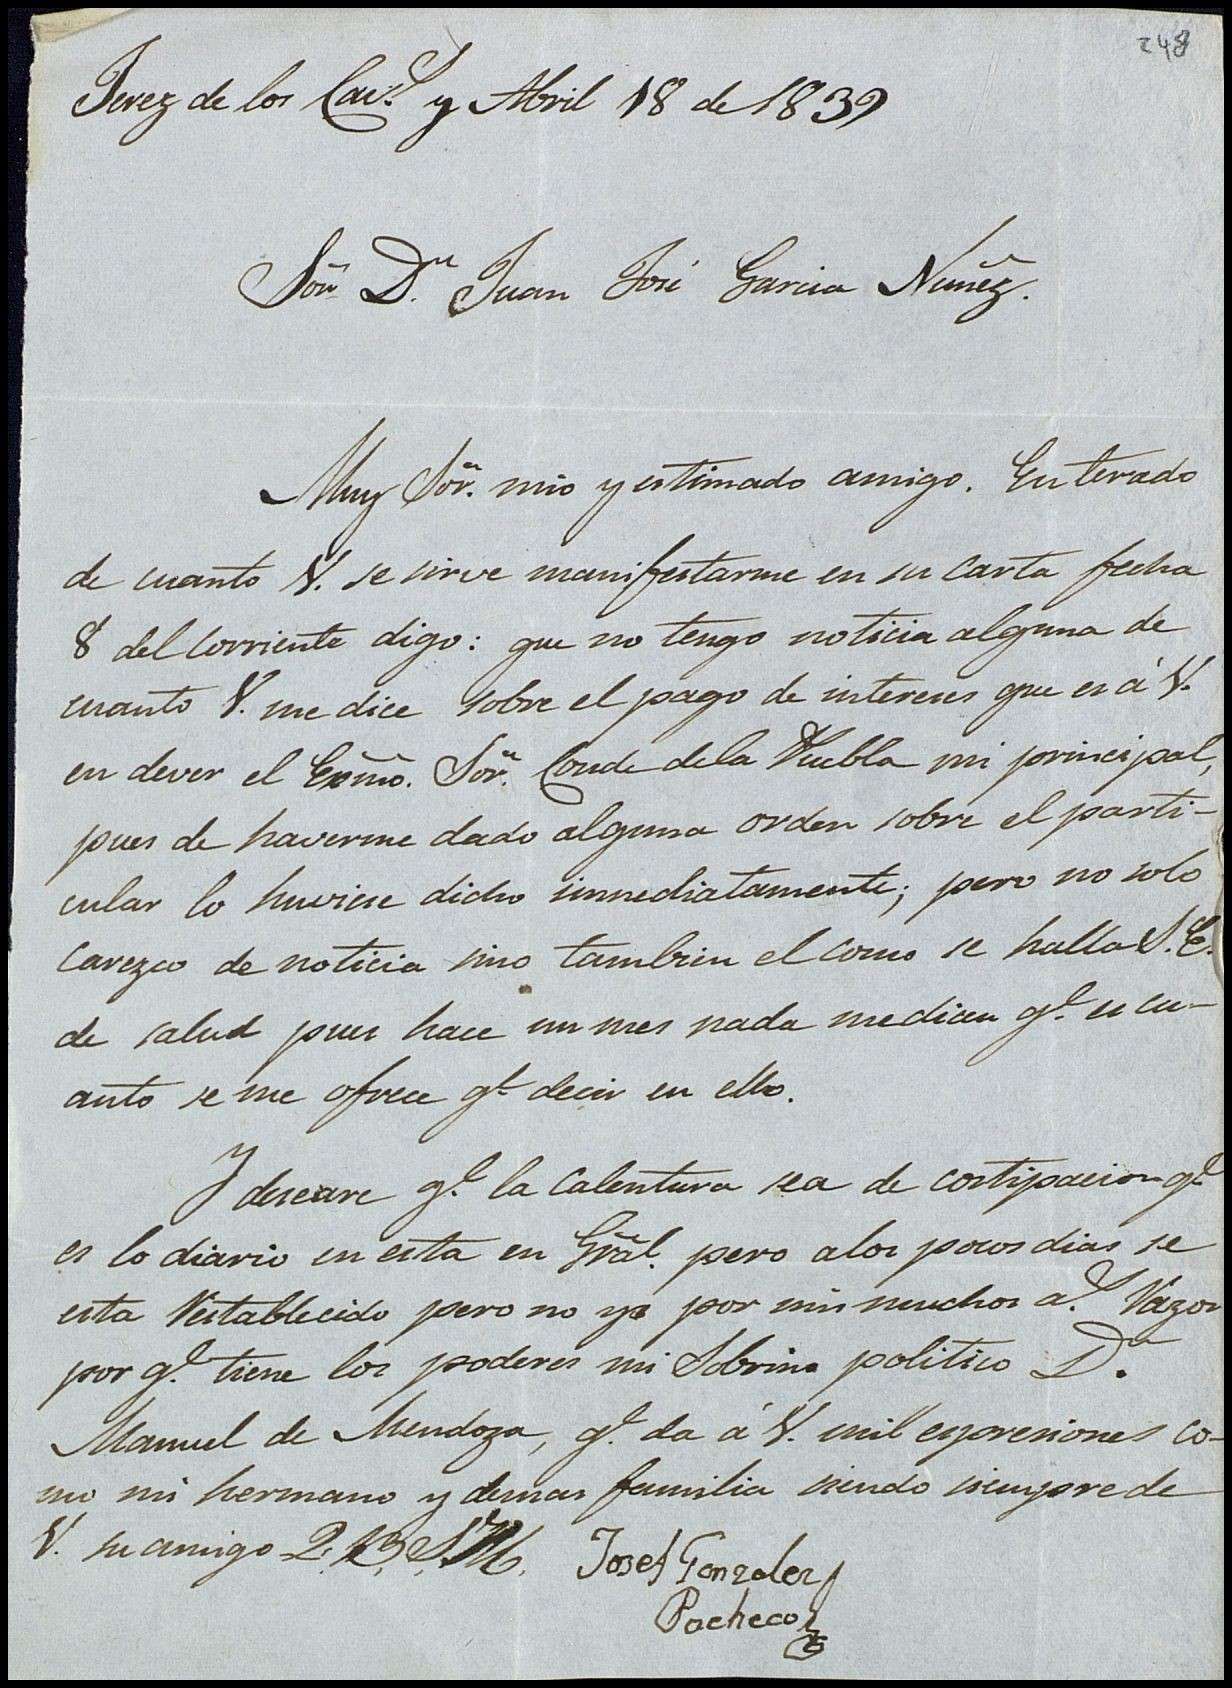 248
Jerez de los Cav.s y Abril 18 de 1839
Sõr. D.n Juan José Garcia Nuñez.
Muy Sõr. mio y estimado amigo. Enterado
de cuanto V. se sirve manifestarme en su carta fecha
8 del corriente digo: que no tengo noticia alguna de
cuanto V. me dice sobre el pago de intereses que es á V.
en dever el Exmõ. Sõr. Conde de la Puebla mi principal,
pues de haverme dado alguna orden sobre el parti-
cular lo huviese dicho inmediatamente; pero no solo
carezco de noticia sino tambien el como se halla S.E.
de salud pues hace un mes nada me dicen q.e es cu-
anto se me ofrece q.e decir en ello.
Y deseare q.e la calentura sea de costipacion q.e
es lo diario en esta en Grãl. pero a los pocos dias se
esta restablecido pero no yo por mis muchos a.s
por q.e tiene los poderes mi Sobrino politico D.n
Manuel de Mendoza, q.e da á V. mil expresiones co-
mo mi hermano y demas familia siendo siempre de
V. su amigo Q. B. S. M. Josef Gonzalez
Pacheco